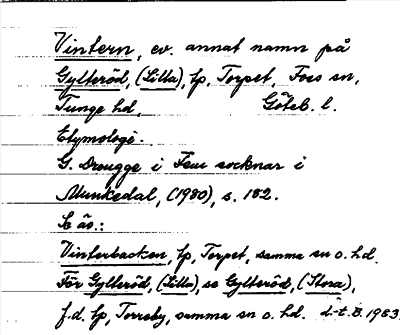 Vintern, ev. annat namn på
Gylteröd, (Lilla), tp, Torpet, Foss sn,
Tunge hd, Göteb. l.
Etymologi.
G. Drougge i Fem socknar i
Munkedal, (1980), s. 182.
Se äv.:
Vinterbacken, tp, Torpet, samma sn o. hd.
För Gylteröd, (Lilla), se Gylteröd, (Stora),
f.d. tp, Torreby, samma sn o. hd. L-t. B. 1983